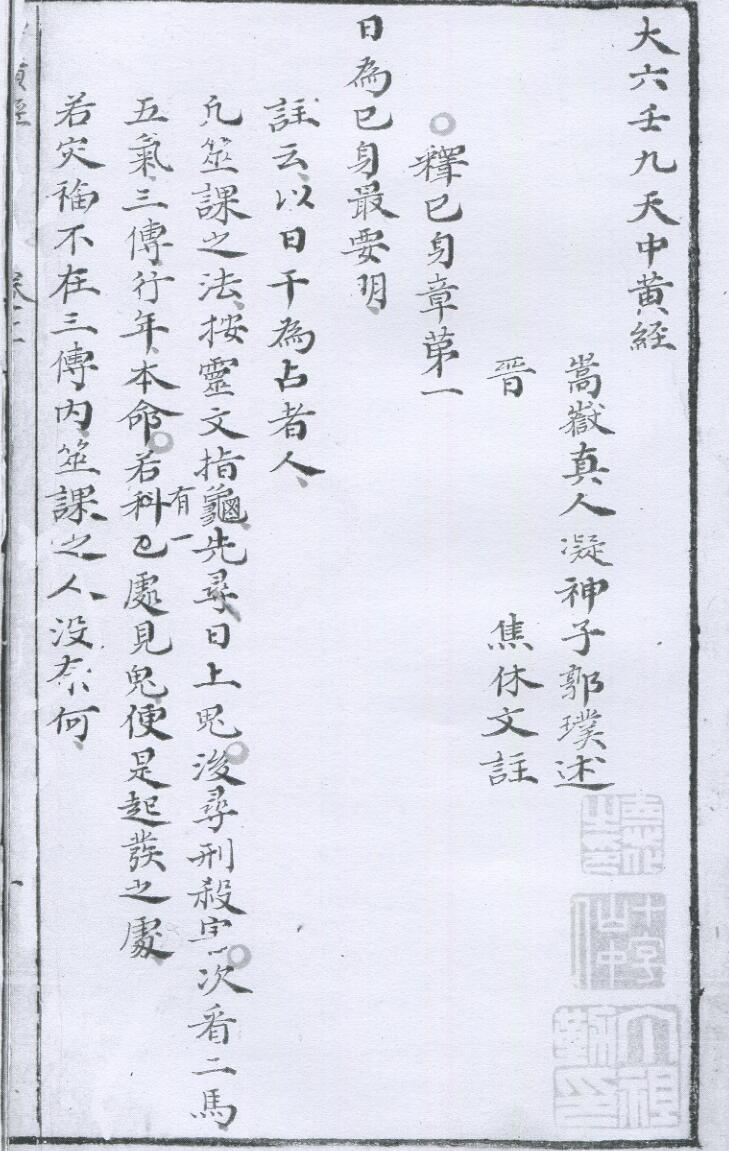 大六壬九天中黄経
嵩嶽真人凝神子郭璞述
晋 焦休文註
釋已身章苐一
日為已身最要明、
註云、以日干為占者人、
凢筮課之法、按靈文指龜、先尋日上鬼後尋刑殺害次看二馬
五氣、三傳、行年、本命若科有一已處見鬼、便是起發之處、
若灾福不在三傳内、筮課之人没奈何、